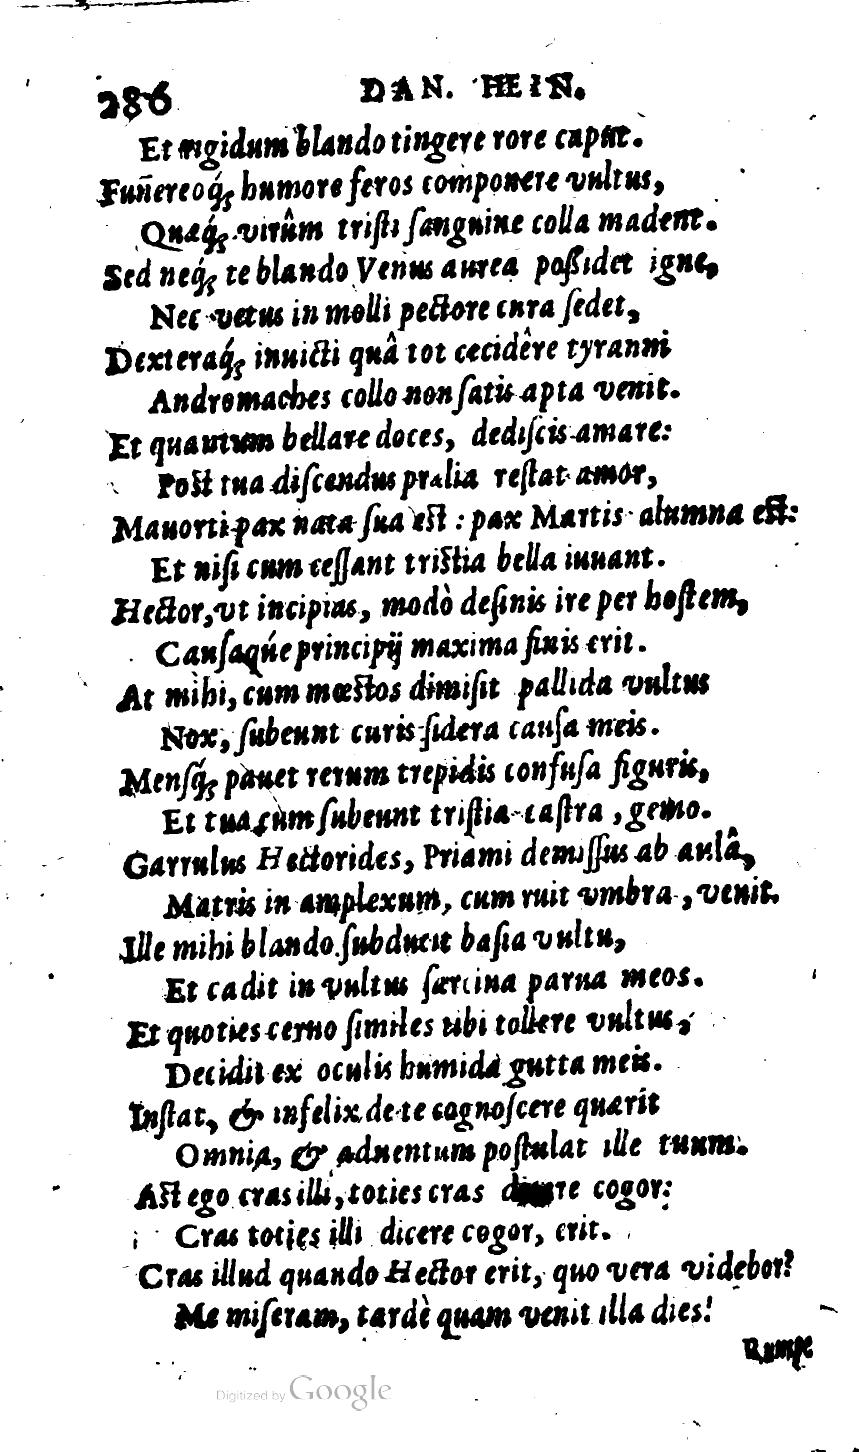 286 DAN. HEIN.
Et rigidum blando tingere rore caput.
Funereoq́; humore feros componere vultus,
Quaq́; virûm tristi sanguine colla madent.
Sed neq́; te blando Venus aurea poßidet igne,
Nec vetus in molli pectore cura sedet,
Dexteraq́; inuicti quâ tot cecidêre tyranni
Andromaches collo non satis apta venit.
Et quantum bellare doces, dediscis amare:
Post tua discendus prælia restat amor,
Mauorti pax nata sua est : pax Martis alumna est:
Et nisi cum cessant tristia bella iuuant.
Hector, vt incipias, modò desinis ire per hostem,
Causaq́ue principij maxima finis erit.
At mihi, cum mœstos dimisit pallida vultus
Nox, subeunt curis sidera causa meis.
Mensq́; pauet rerum trepidis confusa figuris,
Et tua cum subeunt tristia castra, gemo.
Garrulus Hectorides, Priami demissus ab aulâ,
Matris in amplexum, cum ruit vmbra, venit.
Ille mihi blando subducit basia vultu,
Et cadit in vultus sarcina parua meos.
Et quoties cerno similes tibi tollere vultus,
Decidit ex oculis humida gutta meis.
Instat, & infelix de te cognoscere quærit
Omnia, & aduentum postulat ille tuum.
Ast ego cras illi, toties cras cogor:
Cras toties illi dicere cogor, erit.
Cras illud quando Hector erit, quo vera videbor?
Me miseram, tardè quam venit illa dies!
Rumpe
Digitized by Google